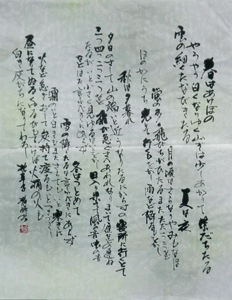 春はあけぼの
やうやう白くなりゆく山ぎは少しあかりて 紫だちたる
雲の細くたなびきたる
夏は夜
月の頃はさらなり やみもなほ
蛍の多く飛びちがひたる またただ一つ二つ
ほのかにうち光て行くもをかし 雨など降るもをかし
秋は夕暮
夕日のさして山の端いと近うなりたるにからすの寝所に行とて
三つ四つ二つなど飛び急ぐさへあはれなりまいて雁などの連ね
たるがいと小さく見ゆるはいとをかし 日入り果て 風の音虫の音
冬はつとめて
雪の降りたるは言ふべきにあらず
霜のいと白きも またさらでもいと寒きに
火など急ぎおこして炭持て渡るもいと
昼になりてぬるくゆるびもていけば火桶の火も
白き灰がちになりてわろし